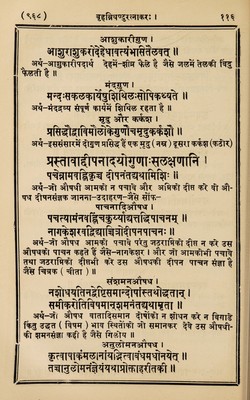 (९६८) बृहन्निघण्टुरत्नाकरः। ११६
आशुकारीगुण।
आशुराशुकरोदेहेधावत्यंभसितैलवत्॥
अर्थ-आशुकारीपदार्थ देहमें-शीघ्र फैले है जैसे जलमें तेलकी बिंदु
फैलती है॥
मंदगुण।
मन्दःसकलकार्येषुशिथिलःसोपिकथ्यते॥
अर्थ-मंदद्रव्य संपूर्ण कार्यमें शिथिल रहता है॥
मृदु और कर्कश।
प्रसिद्धौद्वाविमौलोकेगुणौचमृदुकर्कशौ॥
अर्थ-इससंसारमें दोगुण प्रसिद्ध हैं एक मृदु (नम्र) दूसरा कर्कश (कठोर)
प्रस्तावाद्दीपनादयोगुणाःसलक्षणानि।
पचेन्नामंवह्निकृच्च दीपनंतद्यथामिशिः॥
अर्थ-जो औषधी आमको न पचावे और अग्निको दीप्त करे वो औ-
षध दीपनसंज्ञक जानना-उदाहरण-जैसे सोंफ॥
पाचनादिऔषध।
पचत्यामंनवह्निंचकुर्य्याद्यत्तद्धिपाचनम्॥
नागकेशरवद्विद्याच्चित्रोदीपनपाचनः॥
अर्थ-जो औषध आमको पचावे परंतु जठराग्निको दीप्त न करे उस
औषधको पाचन कहते हैं जैसे-नागकेशर। और जो आमकोभी पचावे
तथा जठराग्निको दीप्तभी करे उस औषधको दीपन पाचन संज्ञा है
जैसे चित्रक (चीता)॥
संशमनऔषध।
नशोधयतिनद्वेष्टिसमान्दोषांस्तथोद्धतान्।
समीकरोतिविषमान्शमनंतद्यथामृता॥
अर्थ-जो औषध वातादिसमान दोषोंको न शोधन करे न बिगाडे
किंतु उद्धत (विषम) भाव स्थितोंको जो समानकर देवे उस औषधी-
की शमनसंज्ञा कही है जैसे गिलोय॥
अनुलोमनऔषध।
कृत्वापाकंमलानांयद्भित्त्वाबंधमधोनयेत्॥
तच्चानुलोमनंज्ञेयंयथाप्रोक्ताहरीतकी॥